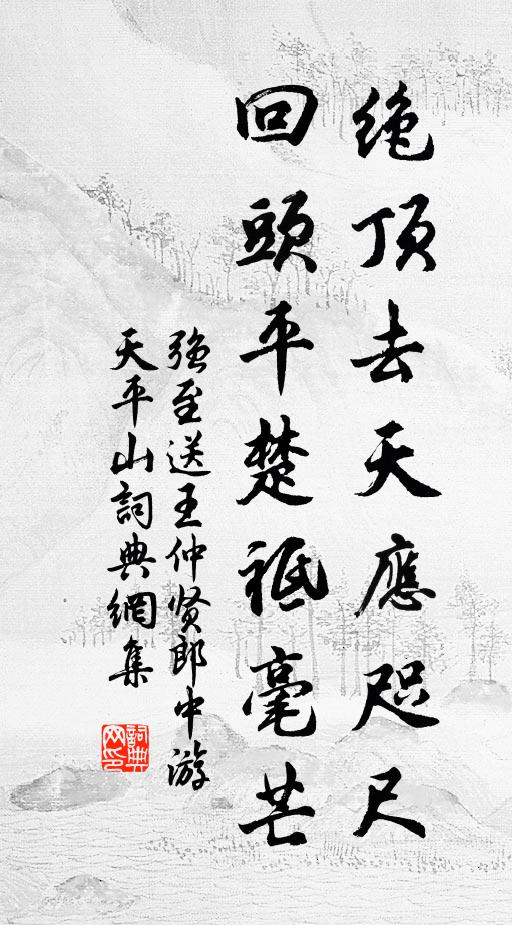 绝顶去天應咫尺
回頭平楚祗毫芒
强至送王仲贤郎中游
天平山詞典網集
詞典
网印